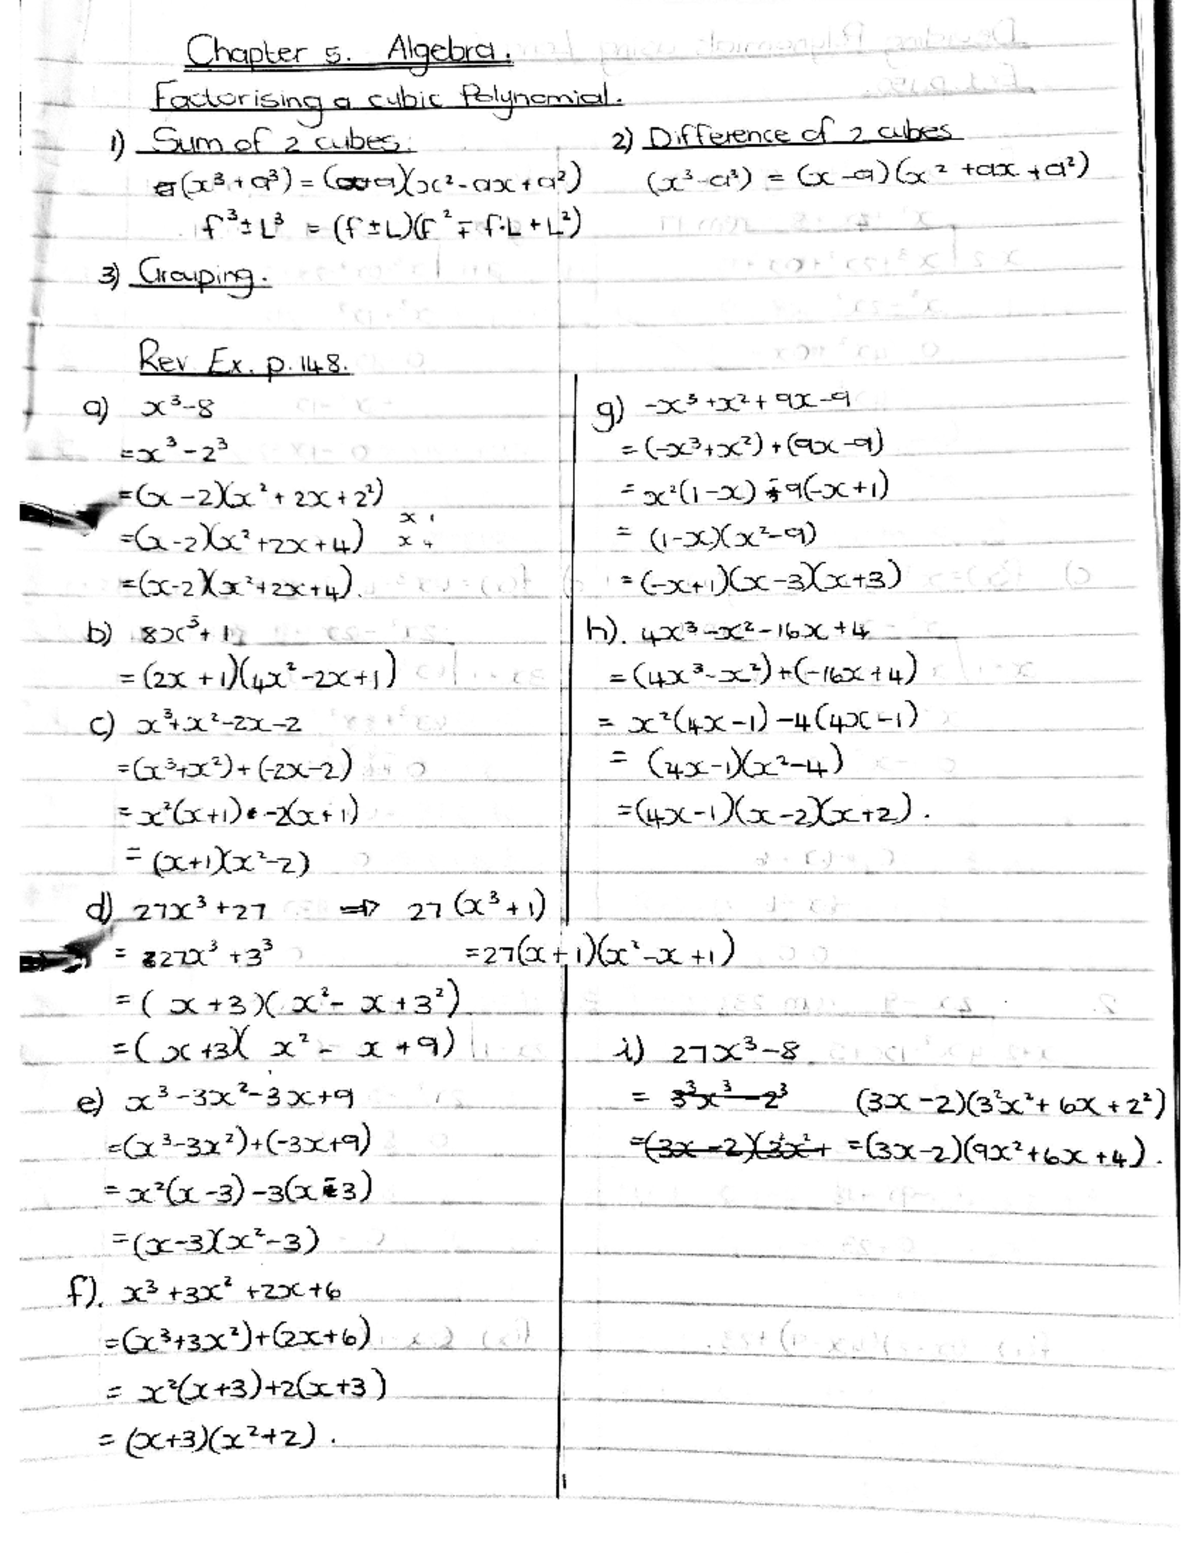 Chapter 5. Algebra.
Factorising a cubic Polynomial.
1) Sum of 2 cubes.
(x³ + a³) = (x+a)(x² - ax + a²)
f³ ± L³ = (f ± L)(f² ∓ f·L + L²)
2) Difference of 2 cubes
(x³ - a³) = (x - a)(x² + ax + a²)
3) Grouping.
Rev Ex. p. 148.
a) x³ - 8
= x³ - 2³
= (x - 2)(x² + 2x + 2²)
= (x - 2)(x² + 2x + 4) x 1
x 4
= (x - 2)(x² + 2x + 4).
b) 8x³ + 1
= (2x + 1)(4x² - 2x + 1)
c) x³ + x² - 2x - 2
= (x³ + x²) + (-2x - 2)
= x²(x + 1) - 2(x + 1)
= (x + 1)(x² - 2)
d) 27x³ + 27 ⇒ 27(x³ + 1)
= 27x³ + 3³ = 27(x + 1)(x² - x + 1)
= ( x + 3)( x² - x + 3²)
= ( x + 3)( x² - x + 9)
e) x³ - 3x² - 3x + 9
= (x³ - 3x²) + (-3x + 9)
= x²(x - 3) - 3(x - 3)
= (x - 3)(x² - 3)
f). x³ + 3x² + 2x + 6
= (x³ + 3x²) + (2x + 6)
= x²(x + 3) + 2(x + 3)
= (x + 3)(x² + 2).
g) -x³ + x² + 9x - 9
= (-x³ + x²) + (9x - 9)
= x²(1 - x) - 9(-x + 1)
= (1 - x)(x² - 9)
= (-x + 1)(x - 3)(x + 3)
h). 4x³ - x² - 16x + 4
= (4x³ - x²) + (-16x + 4)
= x²(4x - 1) - 4(4x - 1)
= (4x - 1)(x² - 4)
= (4x - 1)(x - 2)(x + 2).
i) 27x³ - 8
= 3³x³ - 2³ (3x - 2)(3²x² + 6x + 2²)
= (3x - 2)(3²x² + = (3x - 2)(9x² + 6x + 4).
1